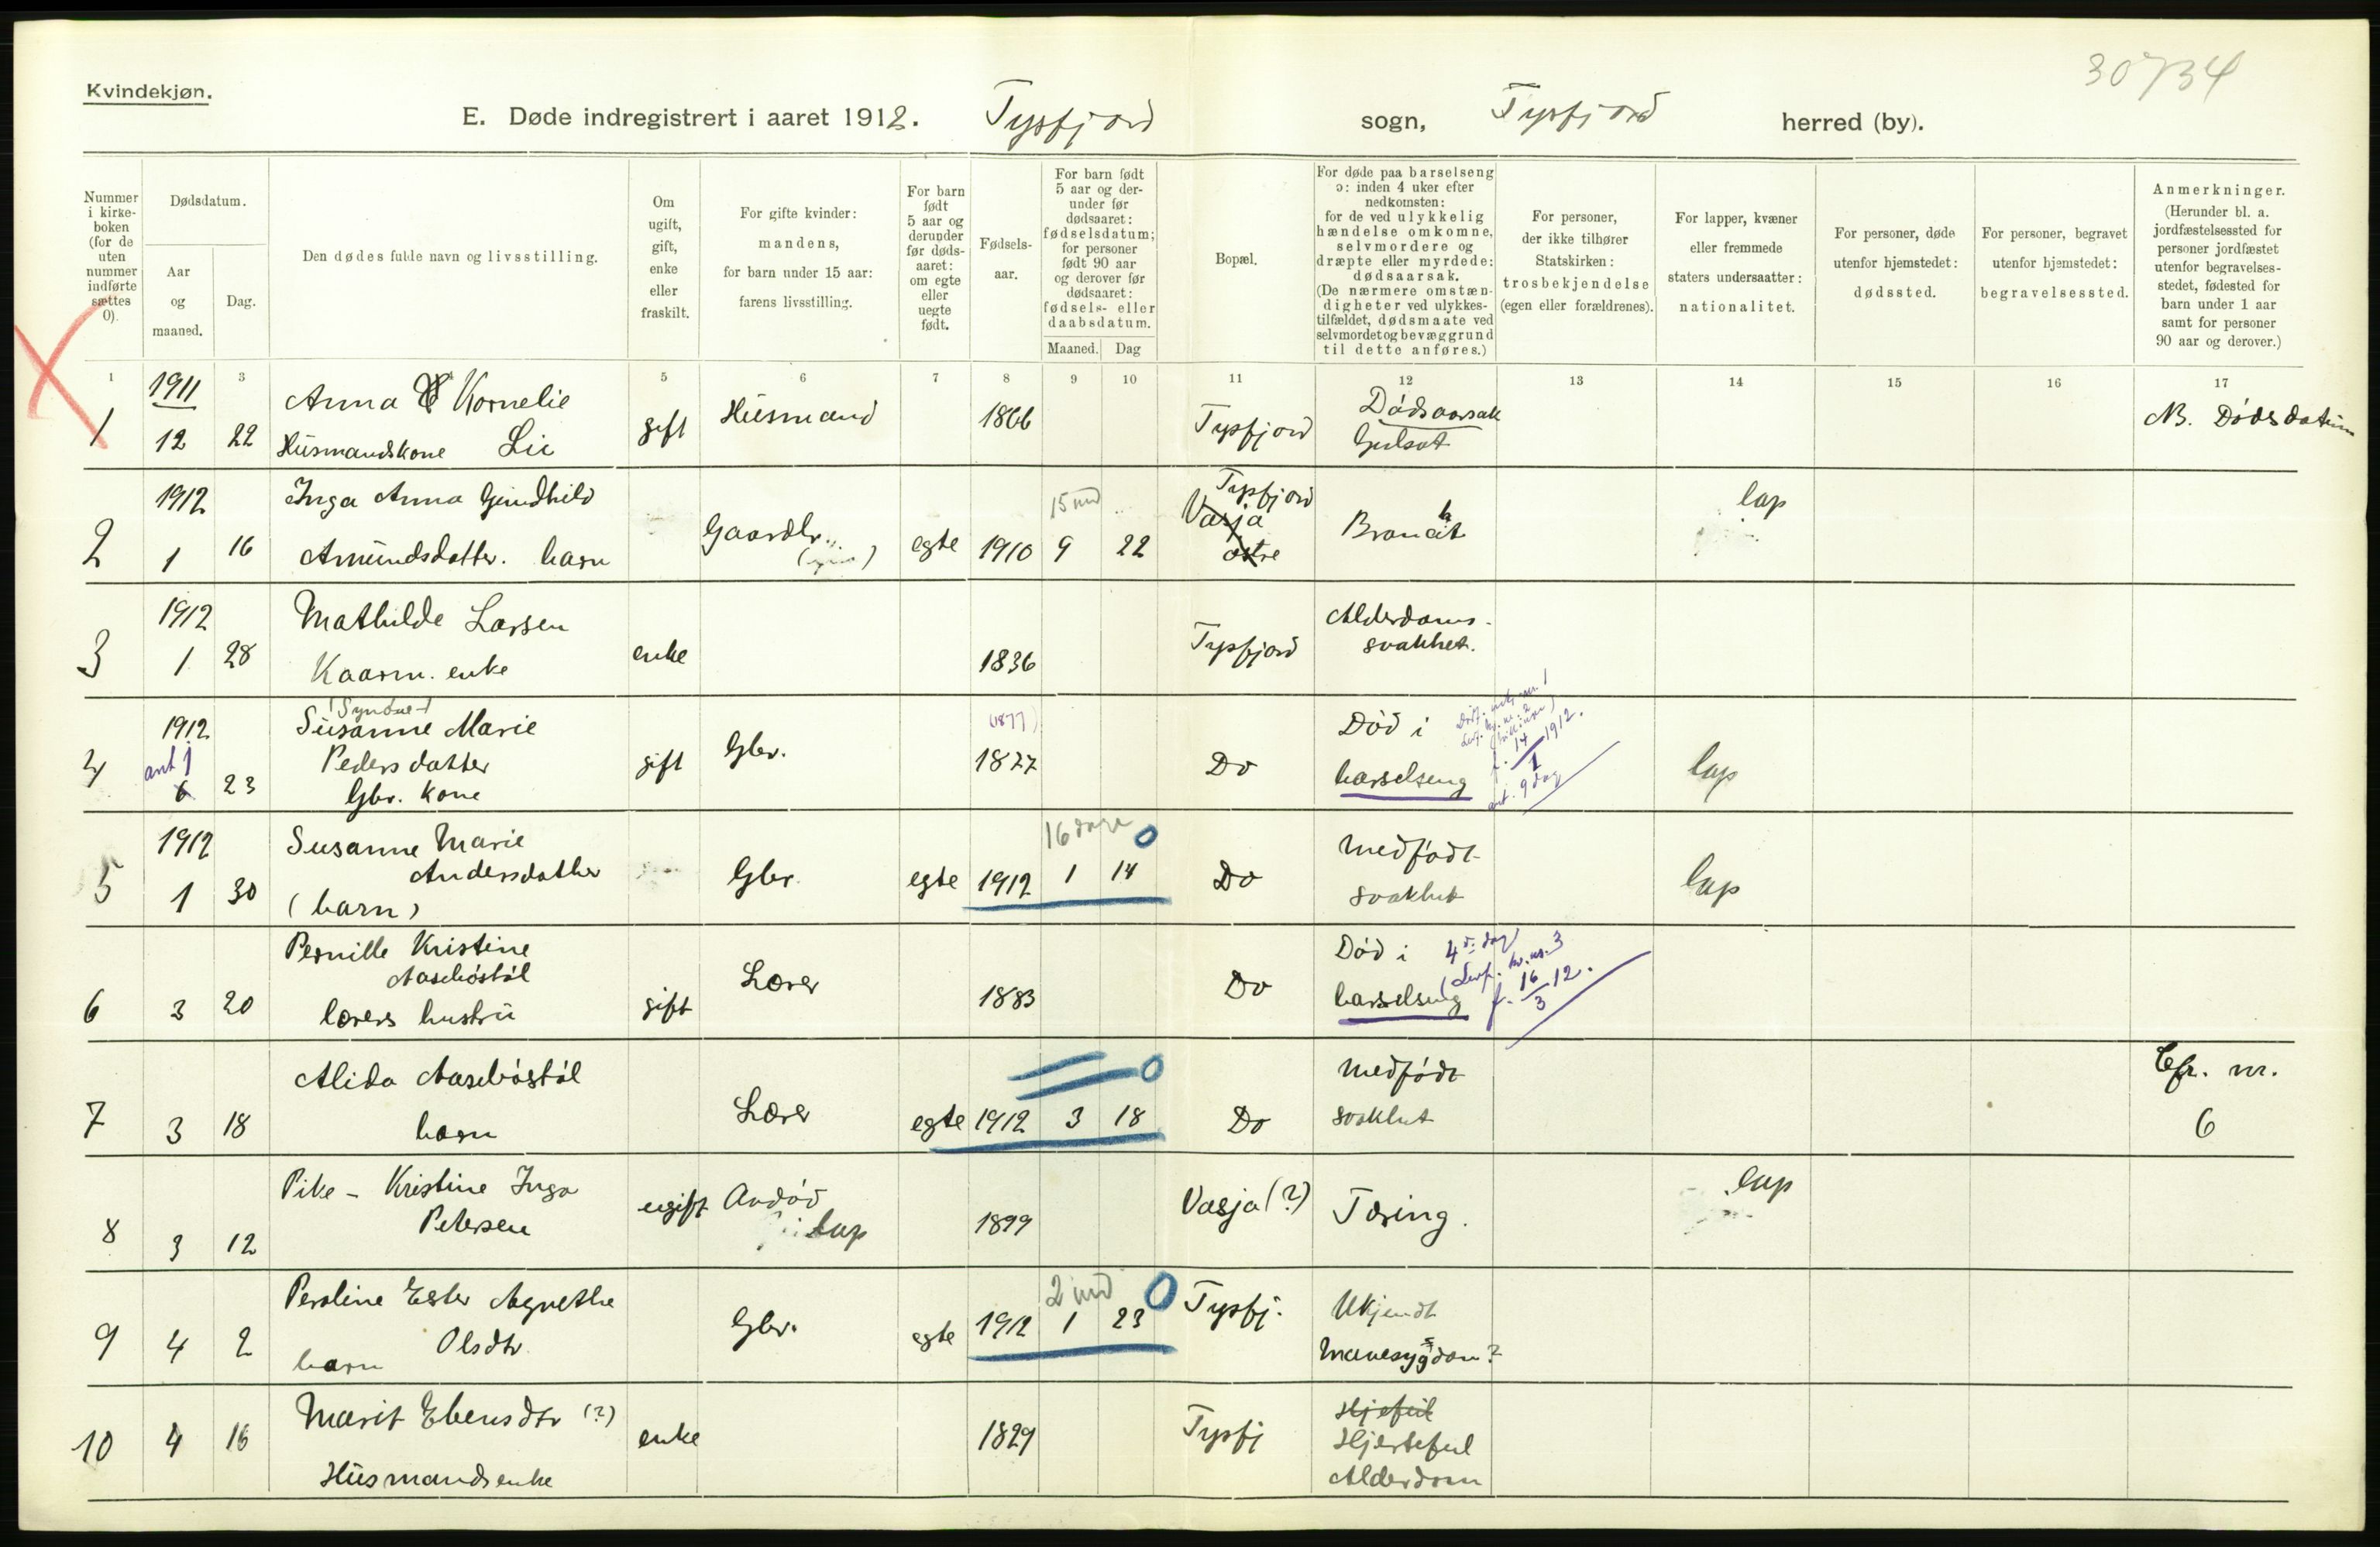 30734
Kvindekjøn.
E. Døde indregistrert i aaret 1912. Tysfjord sogn, Tysfjord herred (by).
Nummer i kirke-boken (for de uten nummer indførte sættes 0).
Dødsdatum.
Aar og maaned.
Dag.
Den dødes fulde navn og livsstilling.
Om ugift, gift, enke eller fraskilt.
For gifte kvinder: mandens, for barn under 15 aar: farens livsstilling.
For barn født 5 aar og derunder før døds-aaret: om egte eller uegte født.
Fødsels-aar.
For barn født 5 aar og der-under før dødsaaret: fødselsdatum; for personer født 90 aar og derover før dødsaaret: fødsels- eller daabsdatum.
Maaned. Dag
Bopæl.
For døde paa barselseng ɔ: inden 4 uker efter nedkomsten: for de ved ulykkelig hændelse omkomne, selvmordere og dræpte eller myrdede: dødsaarsak. (De nærmere omstæn-digheter ved ulykkes-tilfældet, dødsmaate ved selvmordet og bevæggrund til dette anføres.)
For personer, der ikke tilhører Statskirken: trosbekjendelse (egen eller forældrenes).
For lapper, kvæner eller fremmede staters undersaatter: nationalitet.
For personer, døde utenfor hjemstedet: dødssted.
For personer, begravet utenfor hjemstedet: begravelsessted.
Anmerkninger. (Herunder bl. a. jordfæstelsessted for personer jordfæstet utenfor begravelses-stedet, fødested for barn under 1 aar samt for personer 90 aar og derover.)
1 3 5 6 7 8 9 10 11 12 13 14 15 16 17
1911 Anna Kornelie Husmand Dødsaarsak NB. Dødsdatum
1 12 22 Husmandskone Lie gift 1866 Tysfjord Gulsot
1912 Inga Anna Gundhild 15 md Tysfjord lap
Vasja
2 1 16 Amundsdatter. barn Gaardbr. egte 1910 9 22 østre Brandt
1912 Mathilde Larsen Alderdoms-
3 1 28 Kaarm. enke enke 1836 Tysfjord svakhet.
1912 Susanne Marie (1877) Død i
4 ant 1 Pedersdatter gift Gbr. 1877 Do barselseng lap
6 23 Gbr. kone
f. 14/1 1912.
ant. 9 dag
1912 Susanne Marie 16 dage 0 Medfødt
5 1 30 Andersdatter Gbr. egte 1912 1 14 Do svakhet lap
(barn)
Pernille Kristine Død i 4de dag
Aasebøstøl Lærer
6 3 20 lærers hustru gift 1883 Do barselseng f. 16/3 12.
Alida Aasebøstøl 0 Medfødt Cfr. nr.
7 3 18 barn Lærer egte 1912 3 18 Do svakhet 6
Pike - Kristine Inga ugift Andød Vasja (?) Tæring. lap
8 3 12 Petersen lap 1899
Peroline Ester Agnethe 2 md 0 Tysfj. Ukjendt
9 4 2 barn Olsdtr. Gbr. egte 1912 1 23 Mavesygdom?
Marit Ebensdtr (?) Hjefeil
10 4 16 enke 1829 Tysfj Hjertefeil
Husmandsenke Alderdom